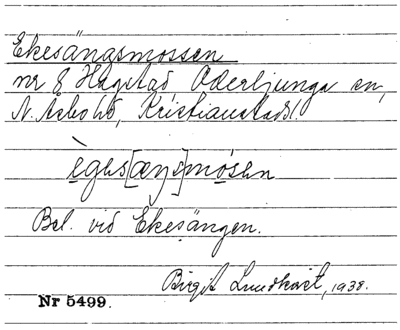 Ekesängsmossen
nr 8 Hagstad Oderljunga sn,
N. Åsbo hd, Kristianstads l.
Bel. vid Ekesängen.
Birgit Lundkvist, 1938.
Nr 5499.